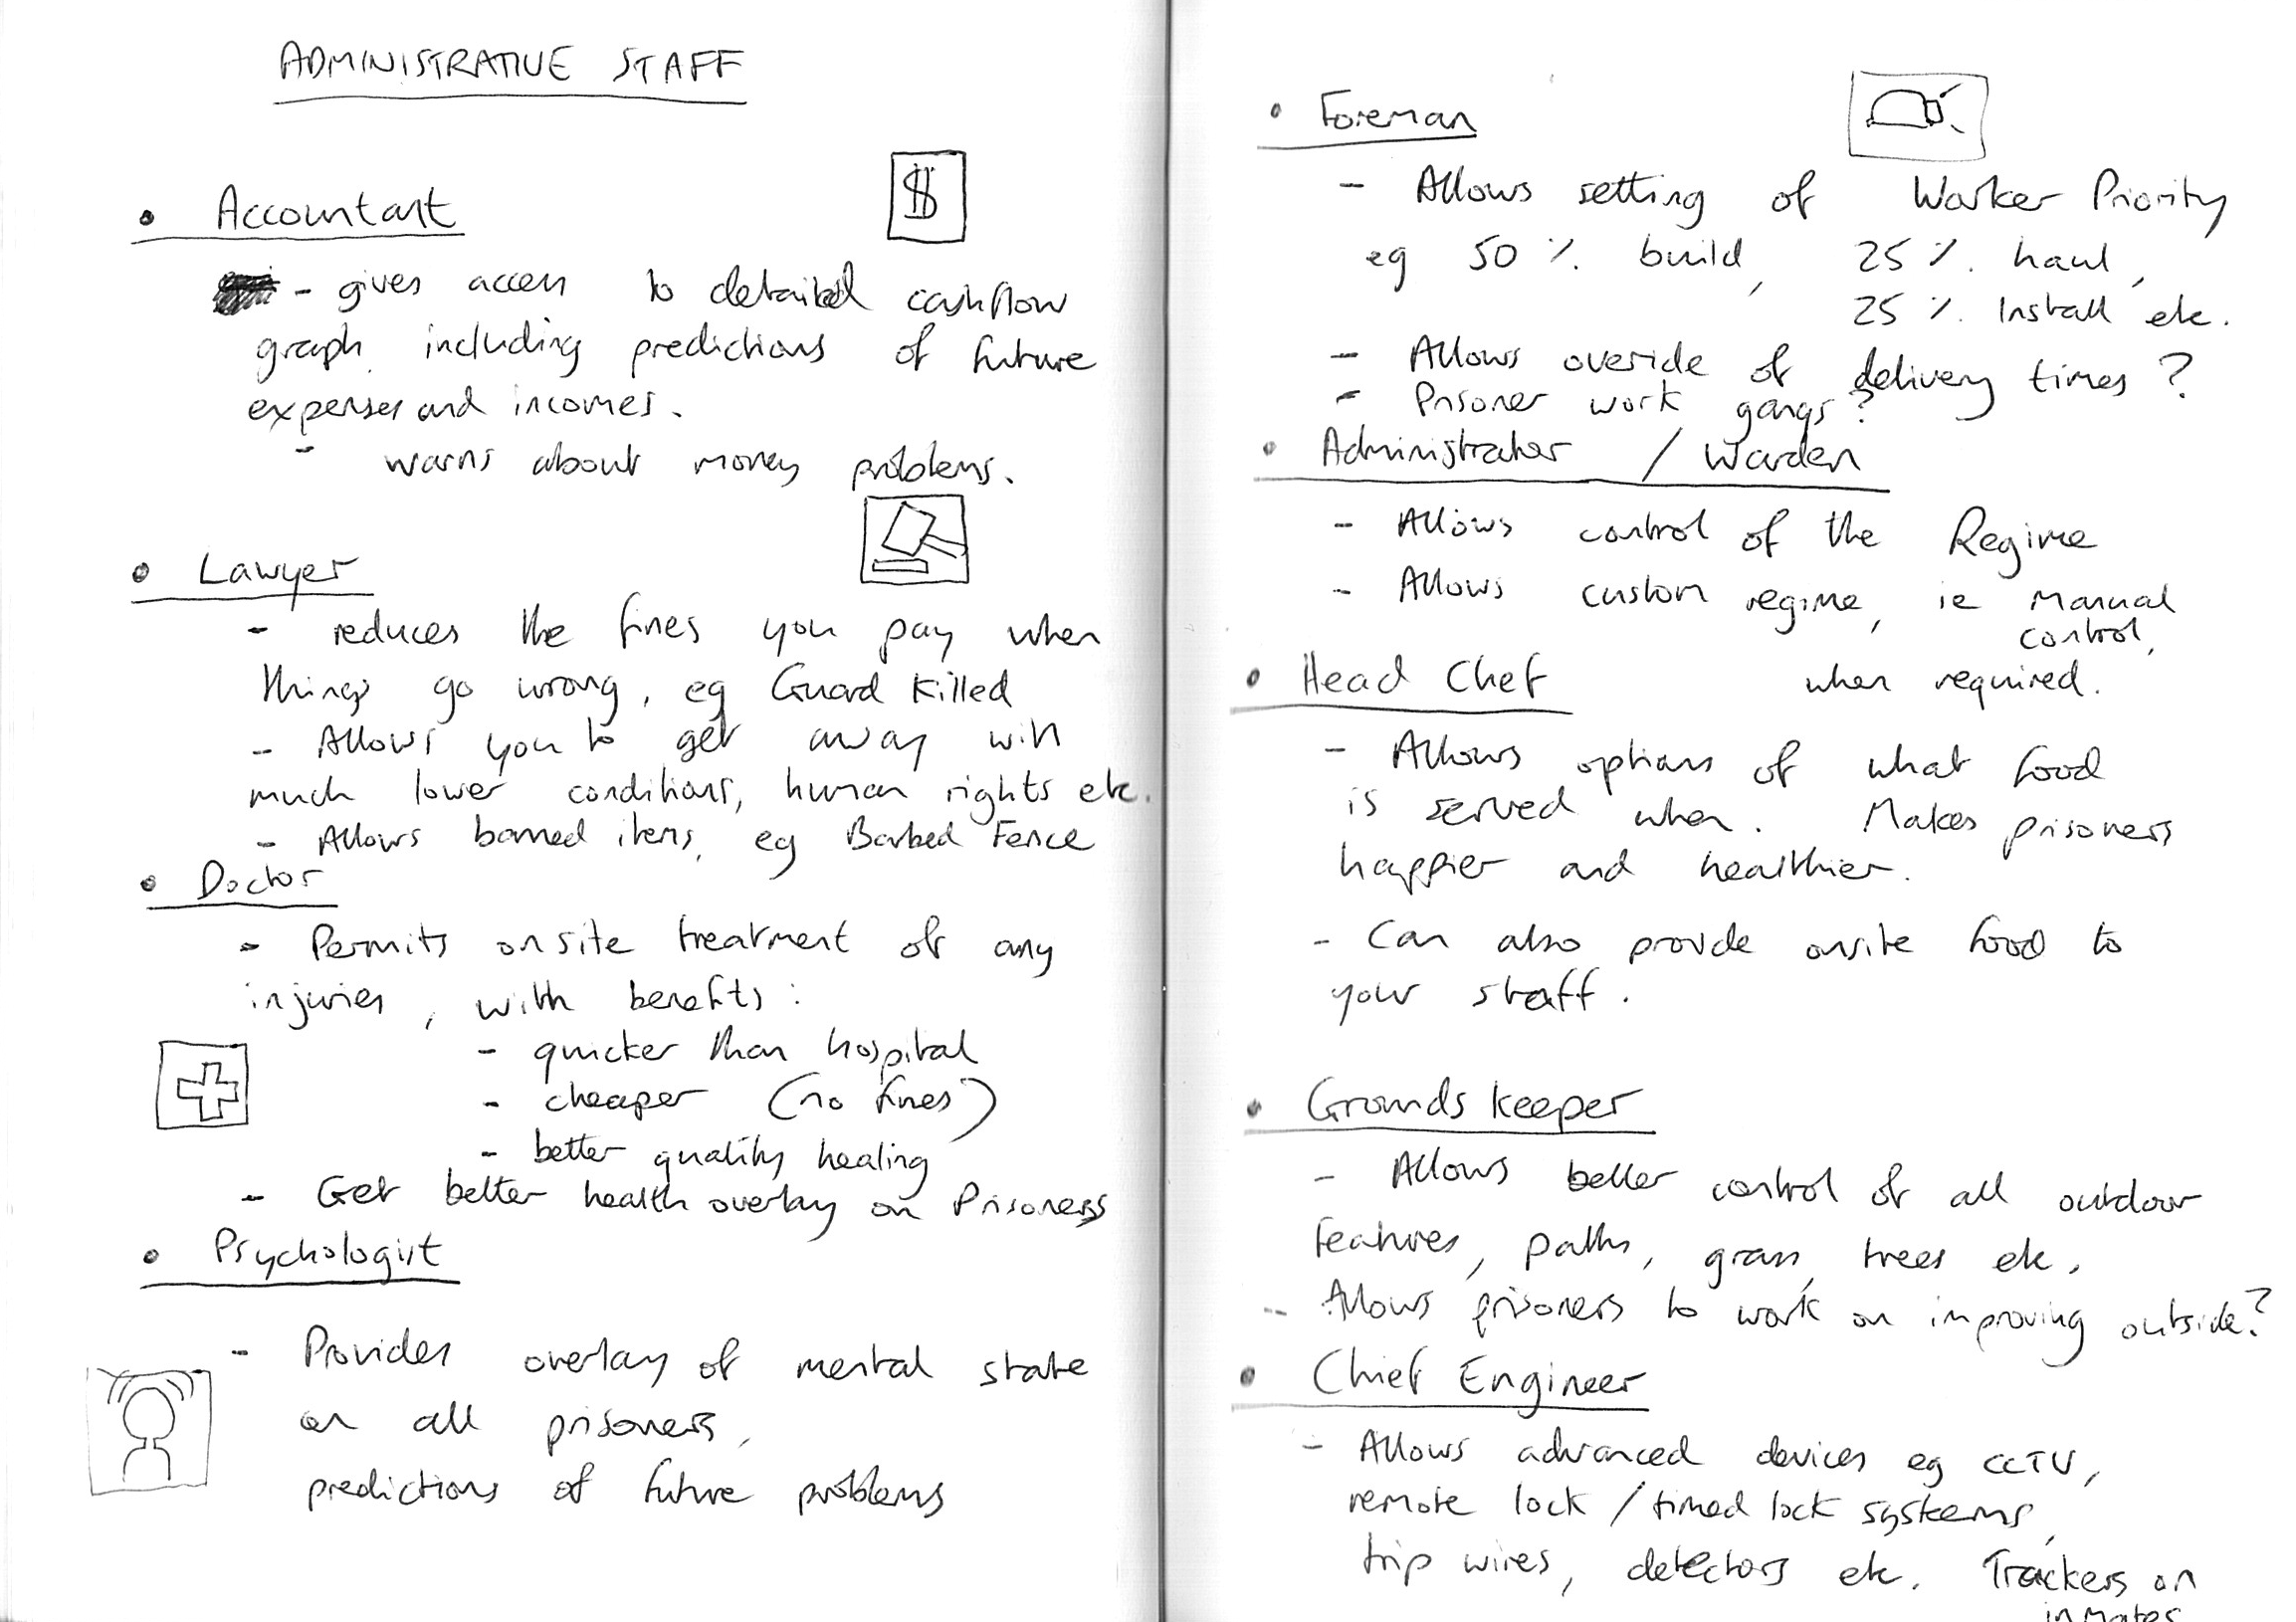 ADMINISTRATIVE STAFF
$
• Accountant
- gives access to detailed cashflow
graph including predictions of future
expenses and incomes.
- warns about money problems.
• Lawyer
- reduces the fines you pay when
things go wrong, eg Guard Killed
- Allows you to get away with
much lower conditions, human rights etc.
- Allows banned items, eg Barbed Fence
• Doctor
- Permits onsite treatment of any
injuries, with benefits:
- quicker than hospital
- cheaper (no fines)
- better quality healing
- Get better health overlay on Prisoners
• Psychologist
- Provides overlay of mental state
on all prisoners,
predictions of future problems
• Foreman
- Allows setting of Worker Priority
eg 50%. build, 25%. haul,
25%. Install etc.
- Allows overide of delivery times?
- Prisoner work gangs?
• Administrator / Warden
- Allows control of the Regime
- Allows custom regime, ie manual
control,
when required.
• Head Chef
- Allows options of what food
is served when. Makes prisoners
happier and healthier.
- Can also provide onsite food to
your staff.
• Grounds keeper
- Allows better control of all outdoor
features, paths, grass, trees etc,
- Allows prisoners to work on improving outside?
• Chief Engineer
- Allows advanced devices eg CCTV,
remote lock / timed lock systems,
trip wires, detectors etc. Trackers on
inmates